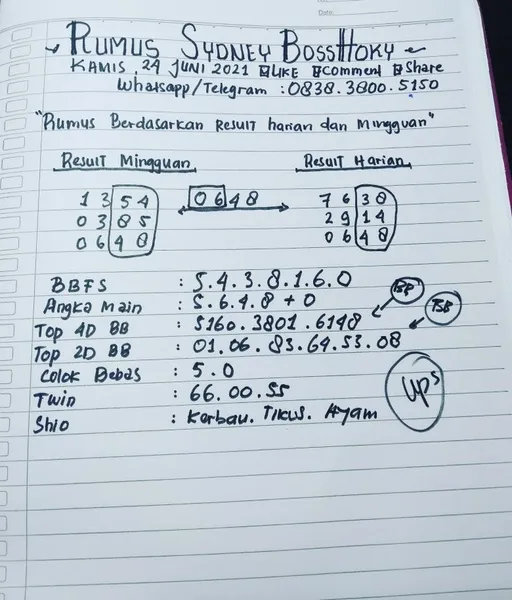 Date:
~ RUMUS SYDNEY BOSSHOKY ~
KAMIS, 24 JUNI 2021 LIKE Comment Share
Whatsapp/Telegram : 0838.3800.5150
"Rumus Berdasarkan Result harian dan Mingguan"
Result Mingguan Result Harian
1 3 5 4 0 6 4 8 7 6 3 8
0 3 8 5 2 9 1 4
0 6 4 8 0 6 4 8
BBFS : 5.4.3.8.1.6.0
Angka Main : 5.6.4.8 + 0
BB
Top 4D BB : 5160.3801.6148
BB
Top 2D BB : 01.06.83.64.53.08
Colok Bebas : 5.0
Twin : 66.00.55
Shio : Kerbau. Tikus. Ayam
UPS